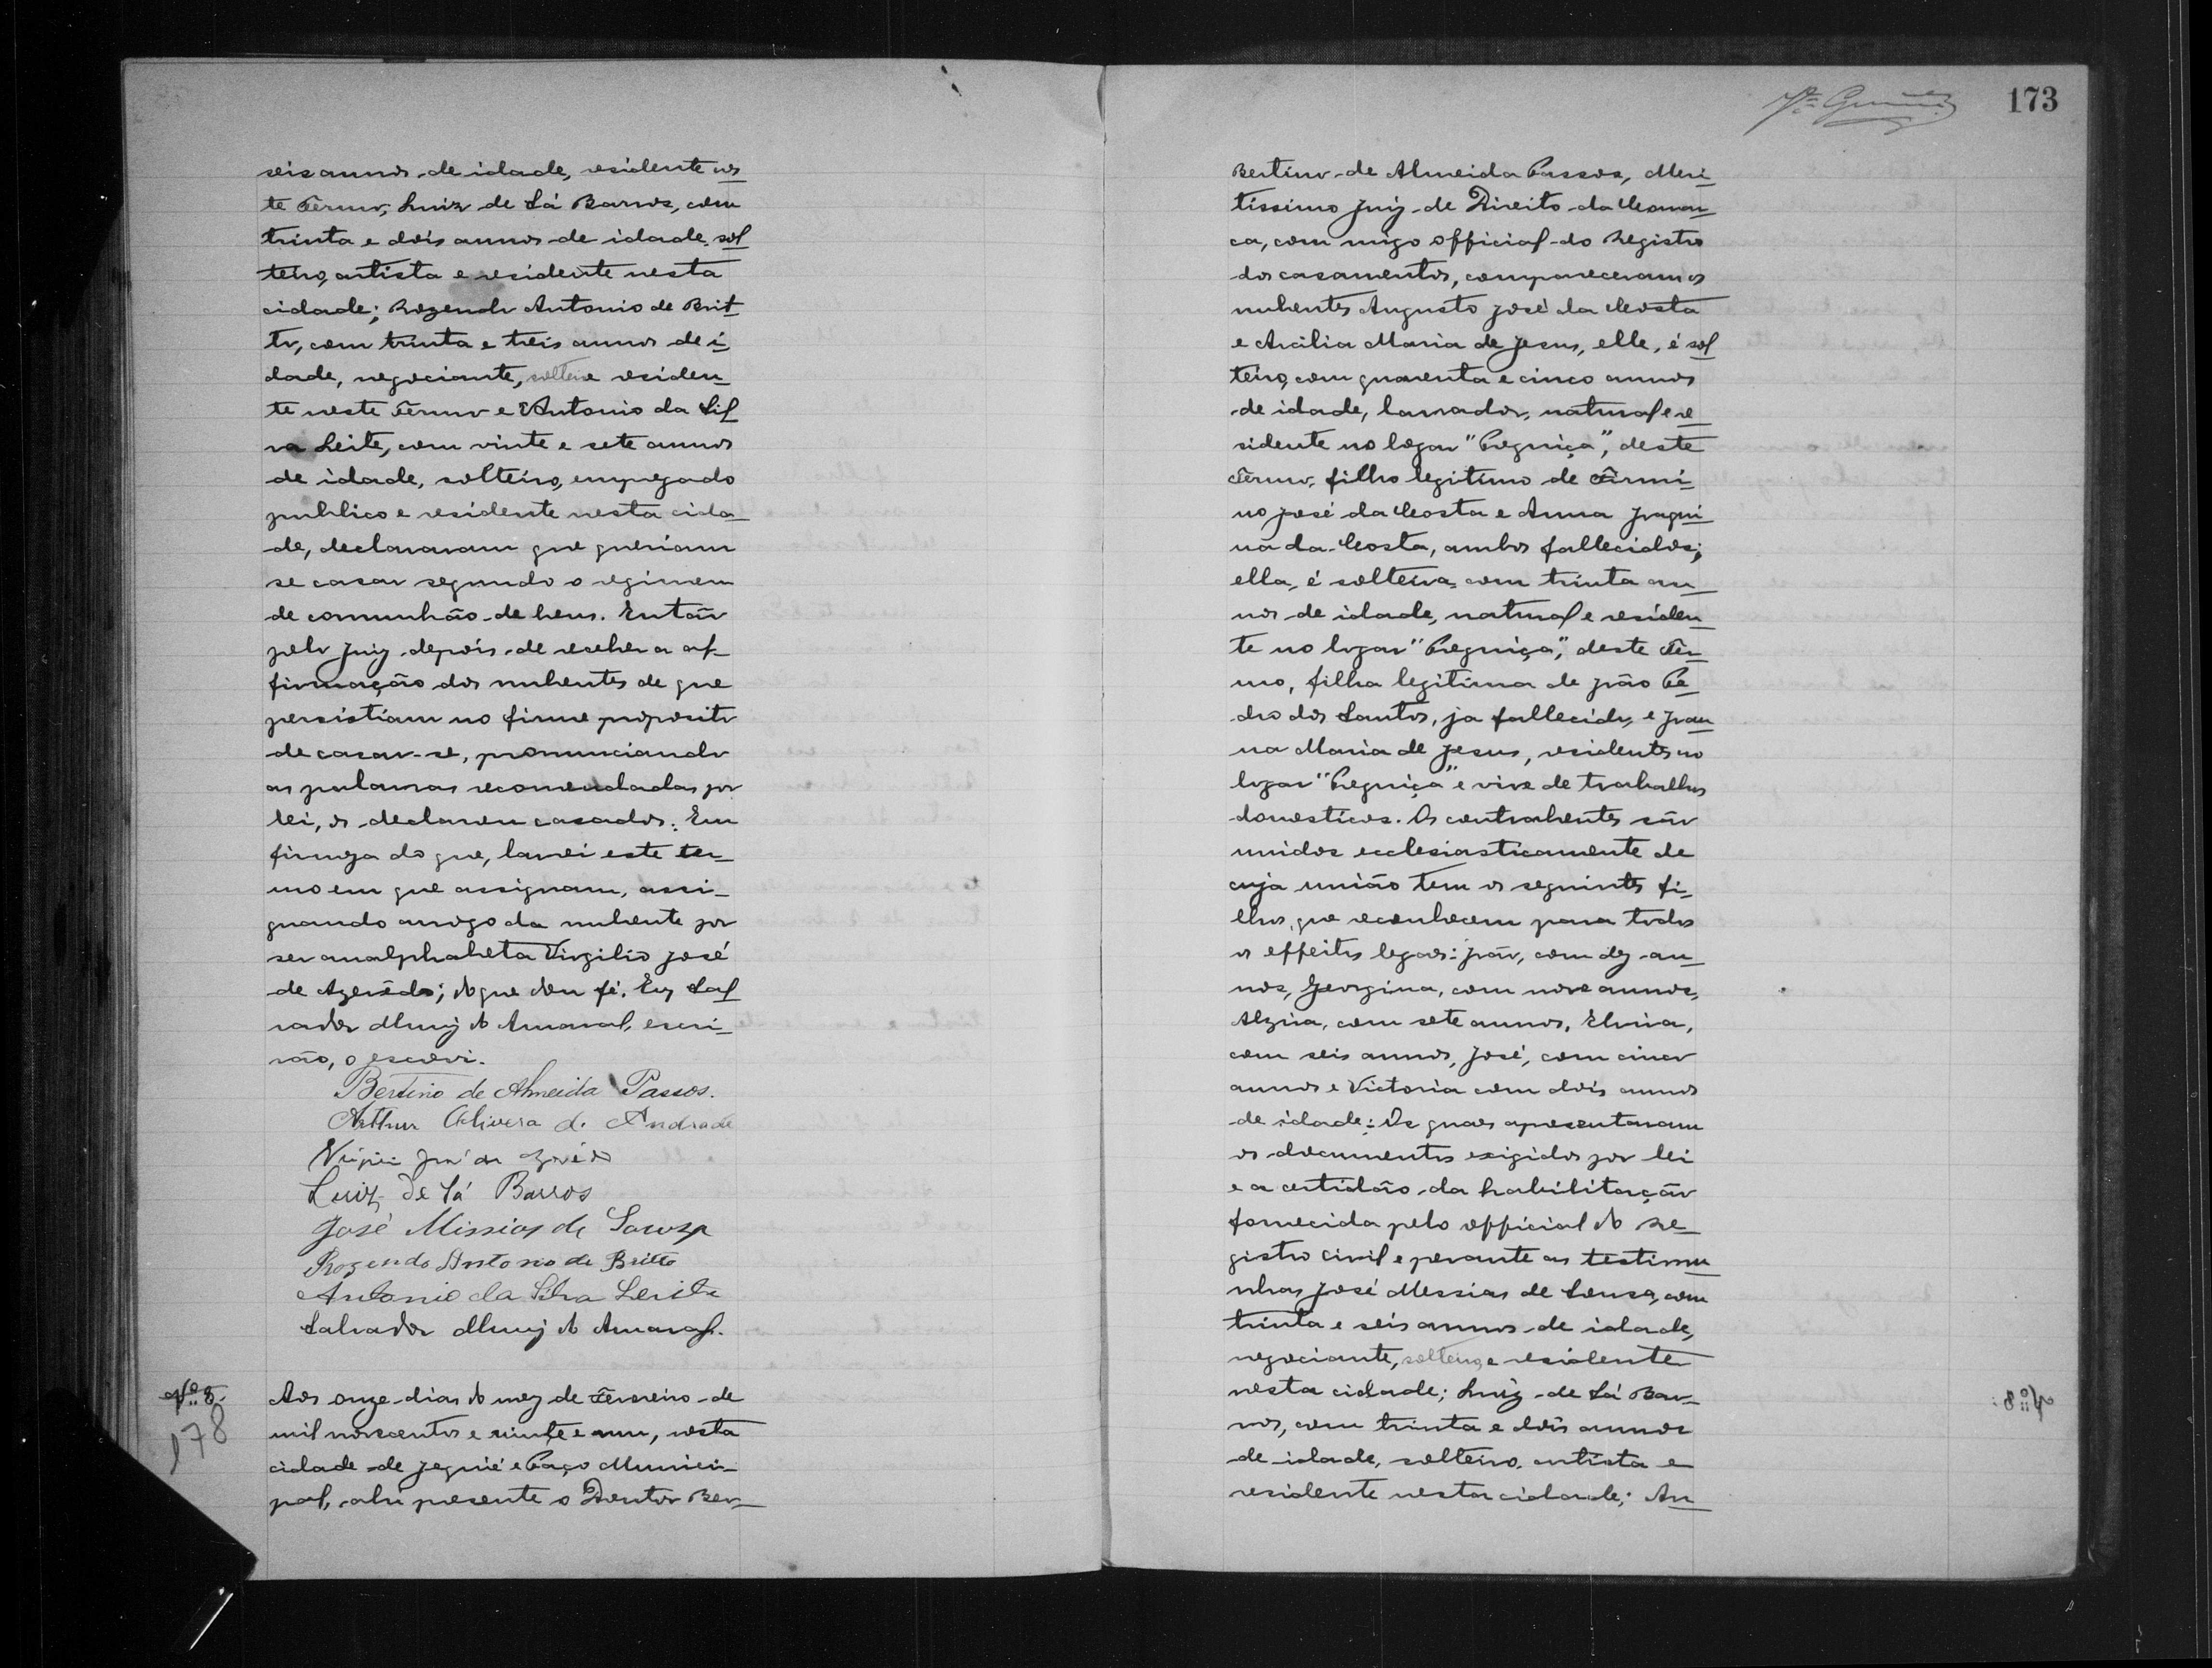 seis annos de idade, residente nes
te Termo, Luiz de Sá Barros, com
trinta e dois annos de idade, sol
teiro, artista e residente nesta
cidade; Rozendo Antonio de Brit
to, com trinta e treis annos de i
dade, negociante, solteiro e residen
te neste Termo e Antonio da Sil
va Leite, com vinte e sete annos
de idade, solteiro, empregado
publico e residente nesta cida
de, declararam que queriam
se casar segundo o regimem
de comunhão de bens. Então
pelo Juiz depois de receber a af
firmação dos nubentes de que
persistiam no firme proposito
de casar-se, pronunciando
as palavras recomendadas por
lei, os declarou casados. Em
firmeza do que, lavrei este ter
mo em que assignam, assi
gnando arrogo da nubente por
ser analphabeta Virgilio José
de Azevêdo; do que dou fé. Eu, Sal
vador Muniz do Amaral, escri
vão, o escrevi.
Bertino de Almeida Passos.
Arthur Oliveira d. Andrade
Virgilio José de Azevêdo
Luiz de Sá Barros
José Missias de Sousa
Rozendo Antonio de Britto
Antonio da Silva Leite
Salvador Muniz do Amaral.
Nº 8.
178
Aos onze dias do mez de Fevereiro de
mil novecentos e vinte e um, nesta
cidade de Jequié e Paço Munici
pal, ahi presente o Doutor Ber
173
Bertino de Almeida Passos, Meri
tissimo Juiz de Direito da Comar
ca, com migo official do Registro
dos casamentos, compareceram os
nubentes Augusto José da Costa
e Arcilia Maria de Jesus, elle, é sol
teiro, com quarenta e cinco annos
de idade, lavrador, natural e re
sidente no logar "Preguiça", deste
Termo, filho legitimo de Firmi
no José da Costa e Anna Joaqui
na da Costa, ambos fallecidos;
ella, é solteira, com trinta an
nos de idade, natural e residen
te no logar "Preguiça", deste Ter
mo, filha legitima de João Pe
dro dos Santos, ja fallecido, e Joan
na Maria de Jesus, residente no
logar "Preguiça" e vive de trabalhos
domesticos. Os contrahentes são
unidos ecclesiasticamente de
cuja união tem os seguintes fi
lhos, que reconhecem para todos
os effeitos legaes: João, com dez an
nos, Georgina, com nove annos,
Alzira, com sete annos, Elvira,
com seis annos, José, com cinco
annos e Victoria com dois annos
de idade: Os quaes apresentaram
os documentos exigidos por lei
e a certidão da habilitação
fornecida pelo official do Re
gistro Civil e perante as testimu
nhas José Messias de Sousa, com
trinta e seis annos de idade,
negociante, solteiro, e residente
nesta cidade; Luiz de Sá Bar
ros, com trinta e dois annos
de idade, solteiro, artista e
residente nesta cidade; An